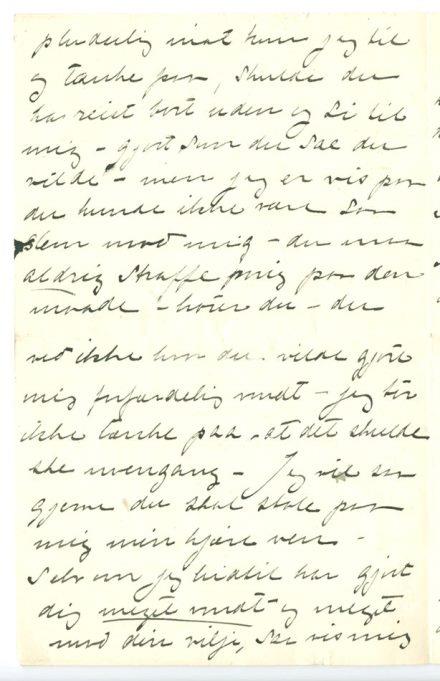 pludselig mot kom jeg til
og tænke paa, skulde du
ha reist bort uden og si til
mig – gjort som du sae du
vilde – men jeg er vis paa
du kunde ikke være saa
slem mod mig – du maa
aldrig straffe mig paa den
maade – hører du – du
ved ikke hvor du vilde gjøre
mig forfærdelig ondt – jeg tør
ikke tænke paa at det skulde
ske engang – Jeg vil saa
gjerne du skal stole paa
mig min kjære ven –
Selv om jeg hidtil har gjort
dig meget ondt og meget
mod din vilje, saa vis mig